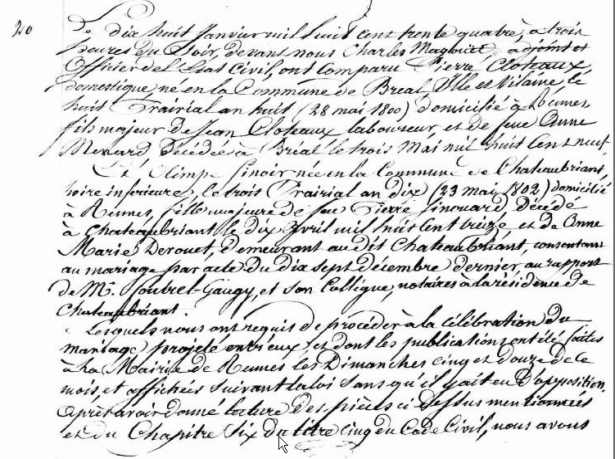 20
Du dix huit Janvier mil huit cent trente quatre, à trois
heures du Soir, devant nous Charles adjoint et
Officier de l'Etat Civil, ont comparu Pierre Cloteaux,
domestique, né en la Commune de Bréal, Ille et Vilaine, le
huit Prairial an huit (28 mai 1800) domicilié à Rennes
fils majeur de Jean Cloteaux laboureur, et de feue Anne
décédée à Bréal le trois Mai mil huit cent neuf
Et Olimpe née en la Commune de Chateaubriant,
Loire inférieure, le trois Prairial an dix (23 mai 1802) domiciliée
à Rennes, fille majeure de feu Pierre décédé
à Chateaubriant le dix Avril mil huit cent treize, et de Anne
Marie Derouet, demeurant au dit Chateaubriant, consentant
au mariage par acte du dix sept décembre dernier, au rapport
de Mr. et son Collègue, notaires à la résidence de
Chateaubriant.
Lesquels nous ont requis de procéder à la célébration du
mariage projeté entr'eux, et dont les publications ont été faites
à la Mairie de Rennes les Dimanches cinq et douze de ce
mois, et affichées suivant la loi sans qu'il y ait eu d'opposition.
Après avoir donné lecture des pièces ci dessus mentionnées
et du Chapitre Six du titre cinq du Code Civil, nous avons